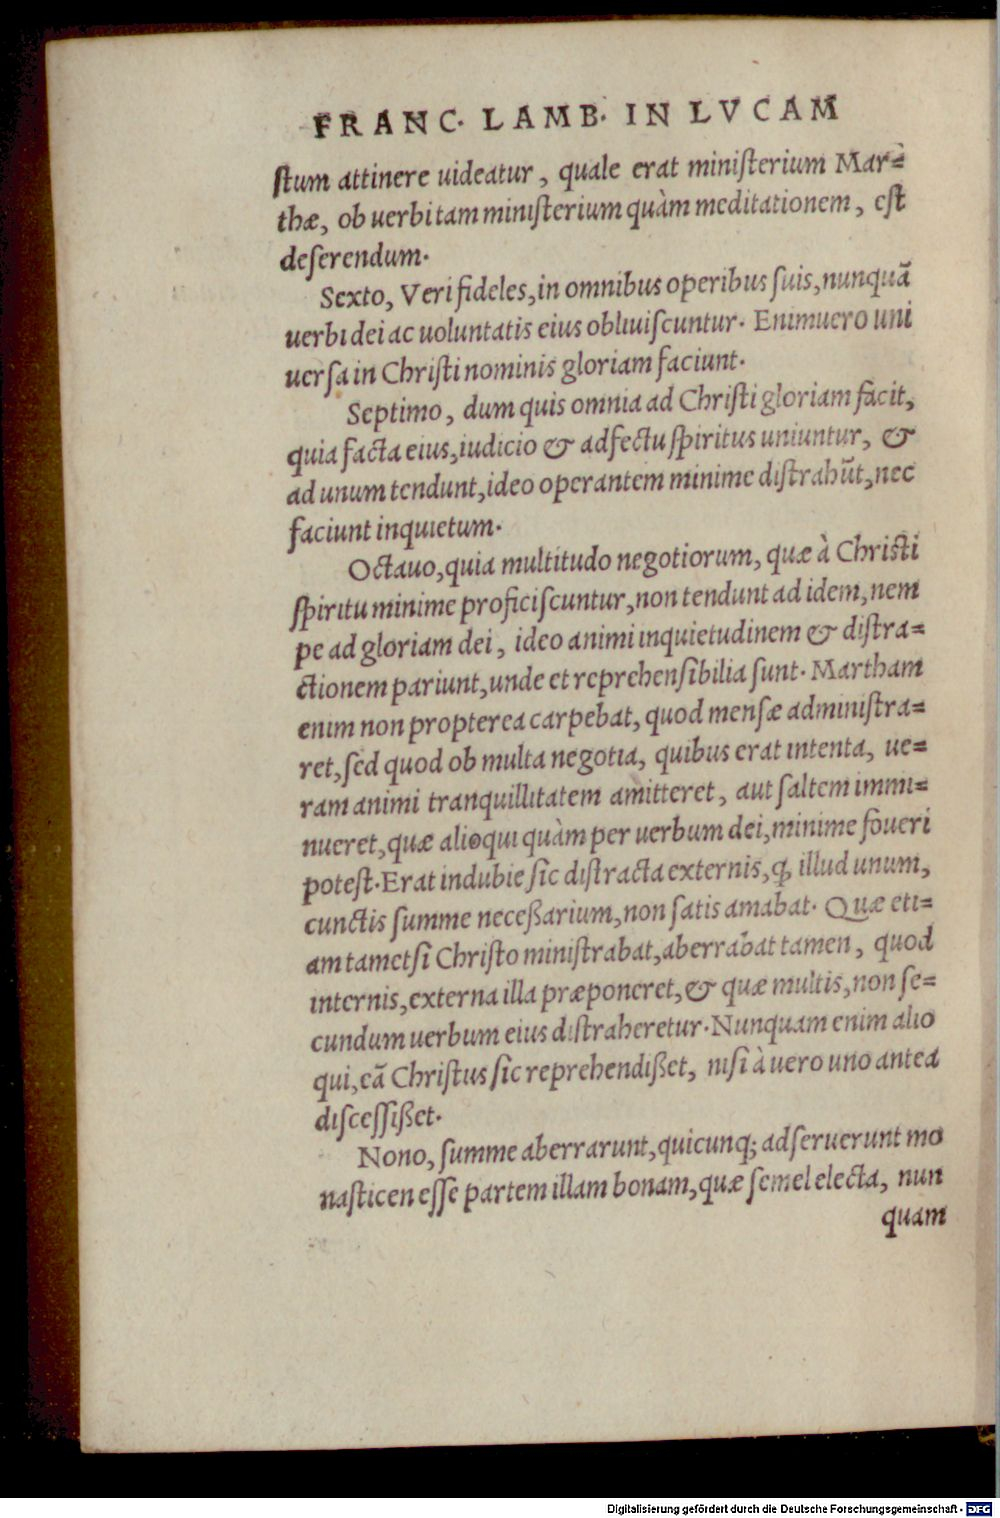 FRANC. LAMB. IN LVCAM
ſtum attinere uideatur, quale erat miniſterium Mar=
thæ, ob uerbi tam miniſterium quàm meditationem, eſt
deſerendum.
Sexto, Veri fideles, in omnibus operibus ſuis, nunquã
uerbi dei ac uoluntatis eius obliuiſcuntur. Enimuero uni
uerſa in Chriſti nominis gloriam faciunt.
Septimo, dum quis omnia ad Chriſti gloriam facit,
quia facta eius, iudicio & adfectu ſpiritus uniuntur, &
ad unum tendunt, ideo operantem minime diſtrahũt, nec
faciunt inquietum.
Octauo, quia multitudo negotiorum, quæ à Chriſti
ſpiritu minime proficiſcuntur, non tendunt ad idem, nem
pe ad gloriam dei, ideo animi inquietudinem & diſtra=
ctionem pariunt, unde et reprehenſibilia ſunt. Martham
enim non propterea carpebat, quod menſæ adminiſtra=
ret, ſed quod ob multa negotia, quibus erat intenta, ue=
ram animi tranquillitatem amitteret, aut ſaltem immi=
nueret, quæ alioqui quàm per uerbum dei, minime foueri
poteſt. Erat indubie ſic diſtracta externis, ꝙ illud unum,
cunctis ſumme neceßarium, non ſatis amabat. Quæ eti=
am tametſi Chriſto miniſtrabat, aberrabat tamen, quod
internis, externa illa præponeret, & quæ multis, non ſe=
cundum uerbum eius diſtraheretur. Nunquam enim alio
qui, eã Chriſtus ſic reprehendißet, niſi à uero uno antea
diſceſſißet.
Nono, ſumme aberrarunt, quicunq; adſeruerunt mo
naſticen eſſe partem illam bonam, quæ ſemel electa, nun
quam
Digitalisierung gefördert durch die Deutsche Forschungsgemeinschaft - DFG